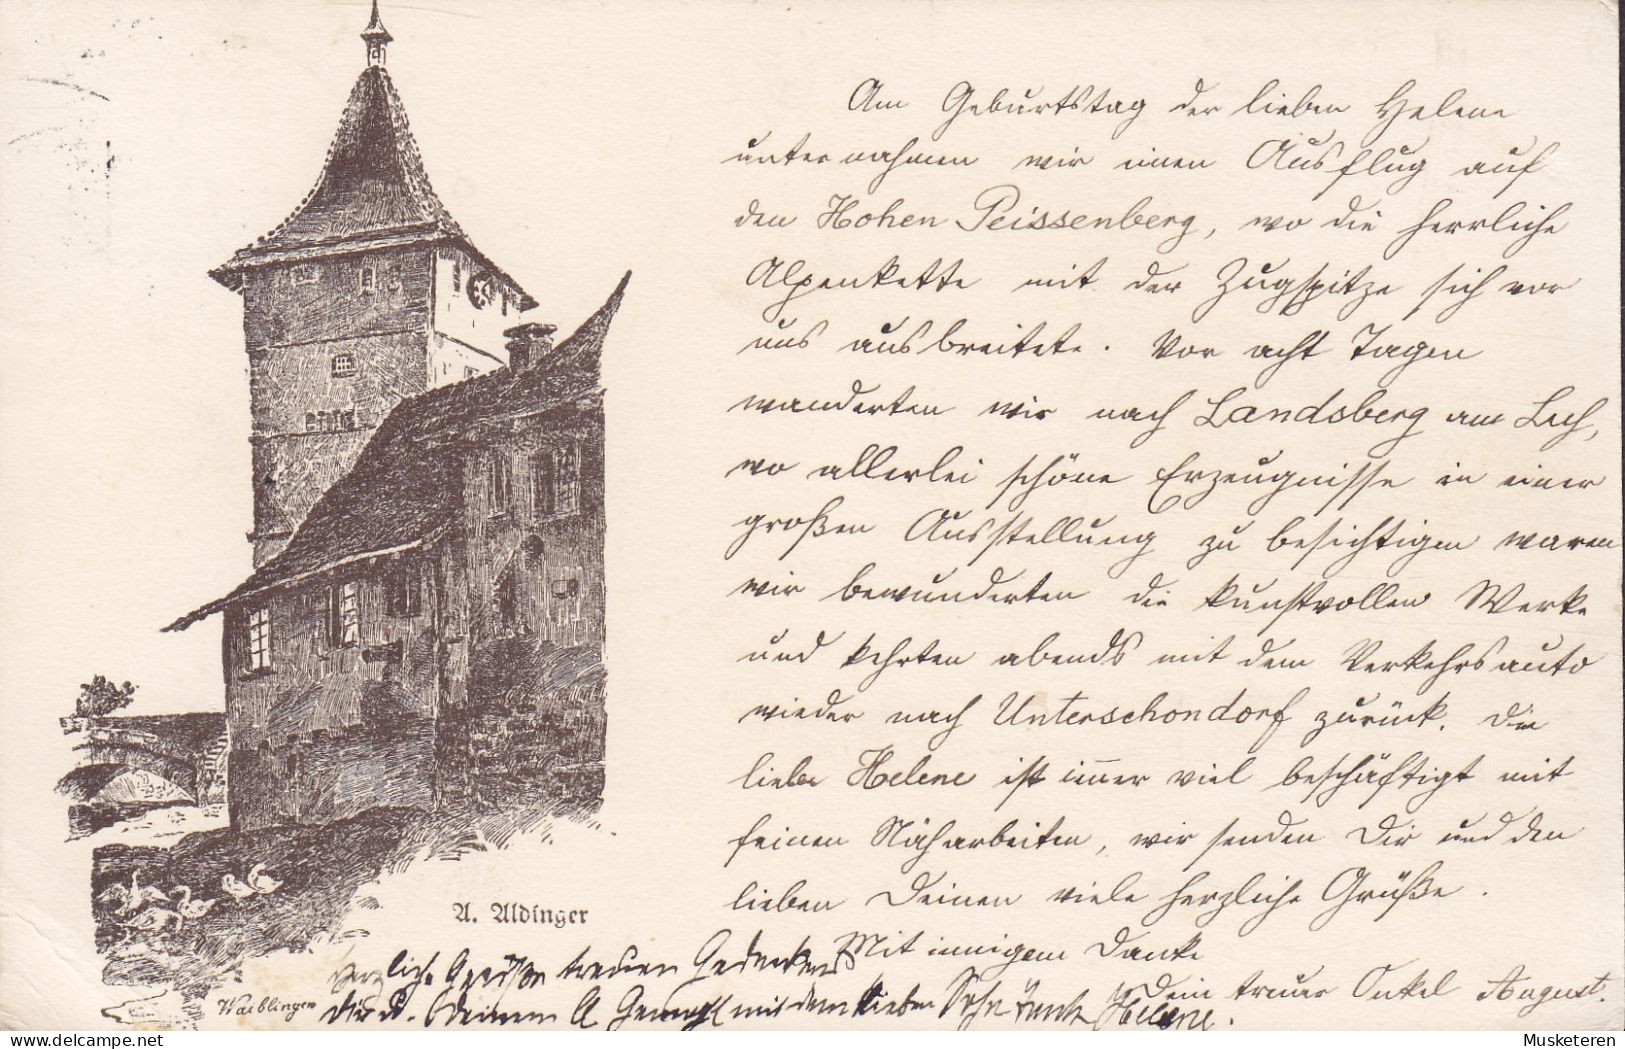 Am Geburtstag der lieben Helene
unternahmen wir einen Ausflug auf
den Hohen Peissenberg, wo die herrliche
Alpenkette mit der Zugspitze sich vor
uns ausbreitete. Vor acht Tagen
wanderten wir nach Landsberg am Lech,
wo allerlei schöne Erzeugnisse in einer
großen Ausstellung zu besichtigen waren
wir bewunderten die kunstvollen Werke
und kehrten abends mit dem Verkehrsauto
wieder nach Unterschondorf zurück. Die
liebe Helene ist immer viel beschäftigt mit
feinen Näharbeiten, wir senden Dir und den
lieben Deinen viele herzliche Grüße.
Mit innigem Danke
Dein treuer Onkel August.
A. Aldinger
Waiblingen
Herzliche Grüße treuen Gedenkens
Dir u. Deinen mit dem lieben
Helene.
Musketeren